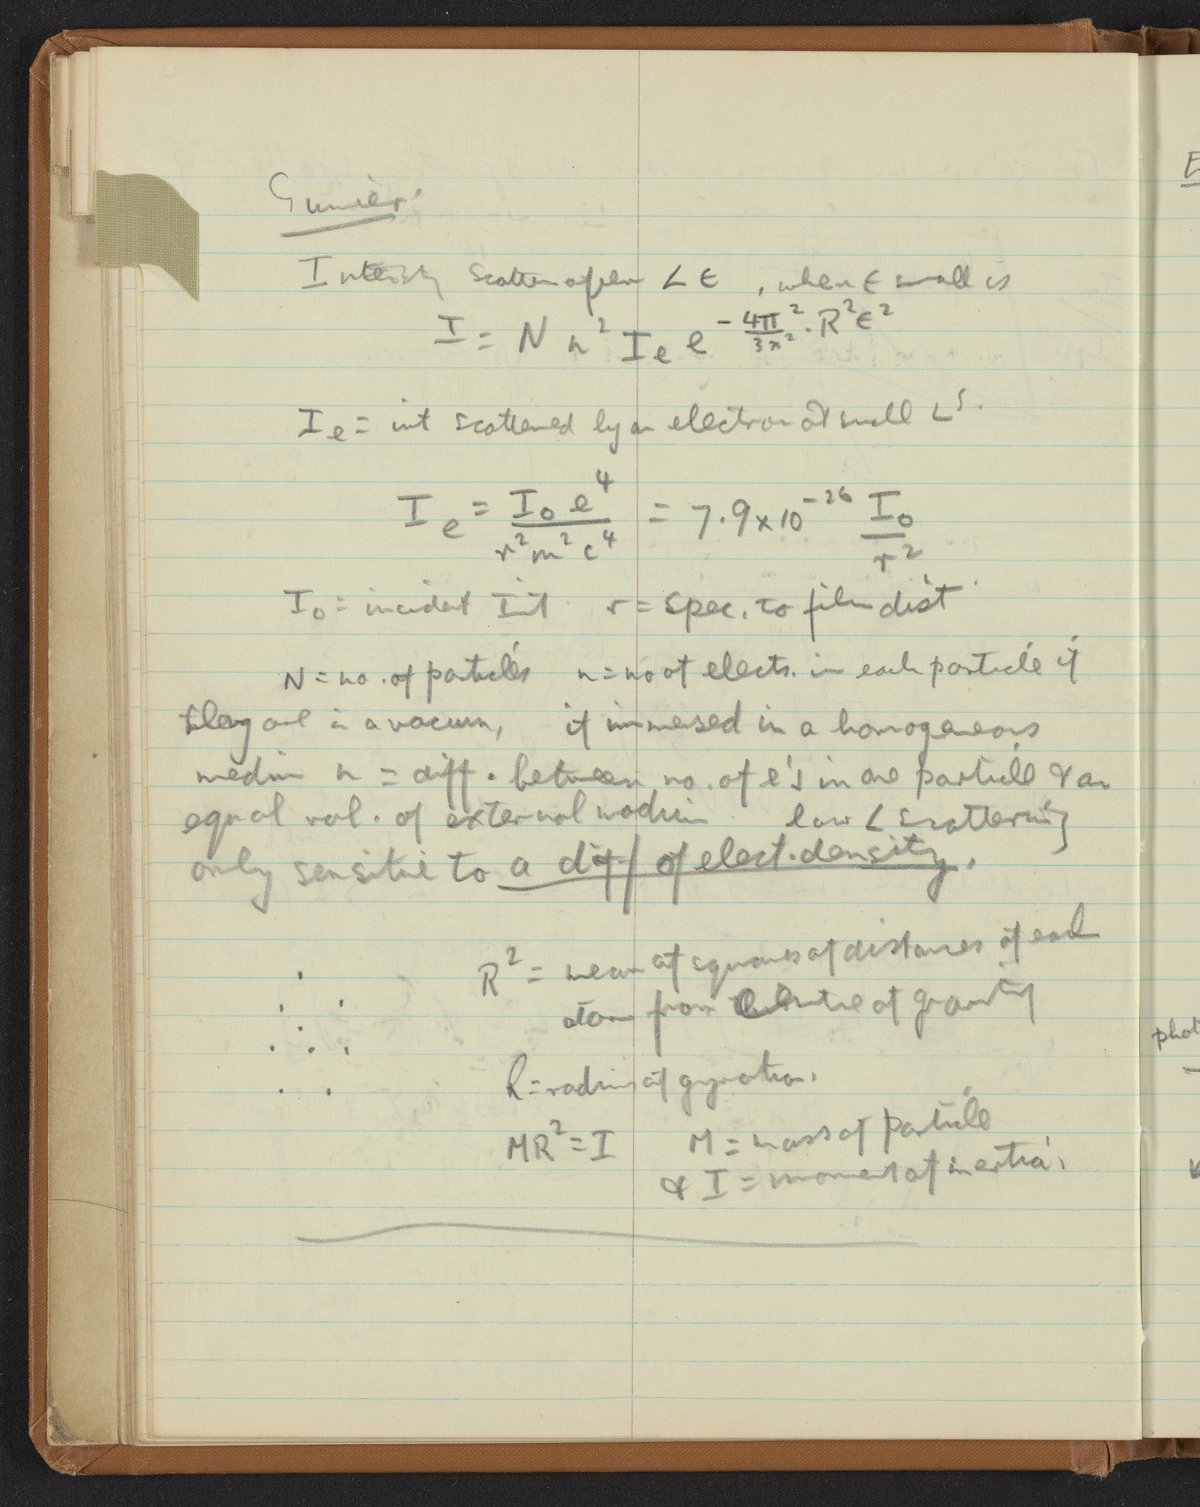 Gunier
Intensity scatter after ∠ ϵ, when ϵ small is
I = N n² I_e e^{-4π²/3λ² · R²ϵ²}
I_e = int scattered by an electron at small ∠s.
I_e = I₀e⁴ / r²m²c⁴ = 7.9 × 10⁻²⁶ I₀ / r²
I₀ = incident Int r = spec. to film dist.
N = no. of particles n = no of elects. in each particle if
they are in a vacuum, if immersed in a homogeneous
medium n = diff. between no. of e's in one particle & an
equal vol. of external medium. low ∠ scattering
only sensitive to a diff of elect. density.
R² = mean of squares of distances of each
atom from centre of gravity
R = radius of gyration.
MR² = I M = mass of particle
& I = moment of inertia.
E
phot